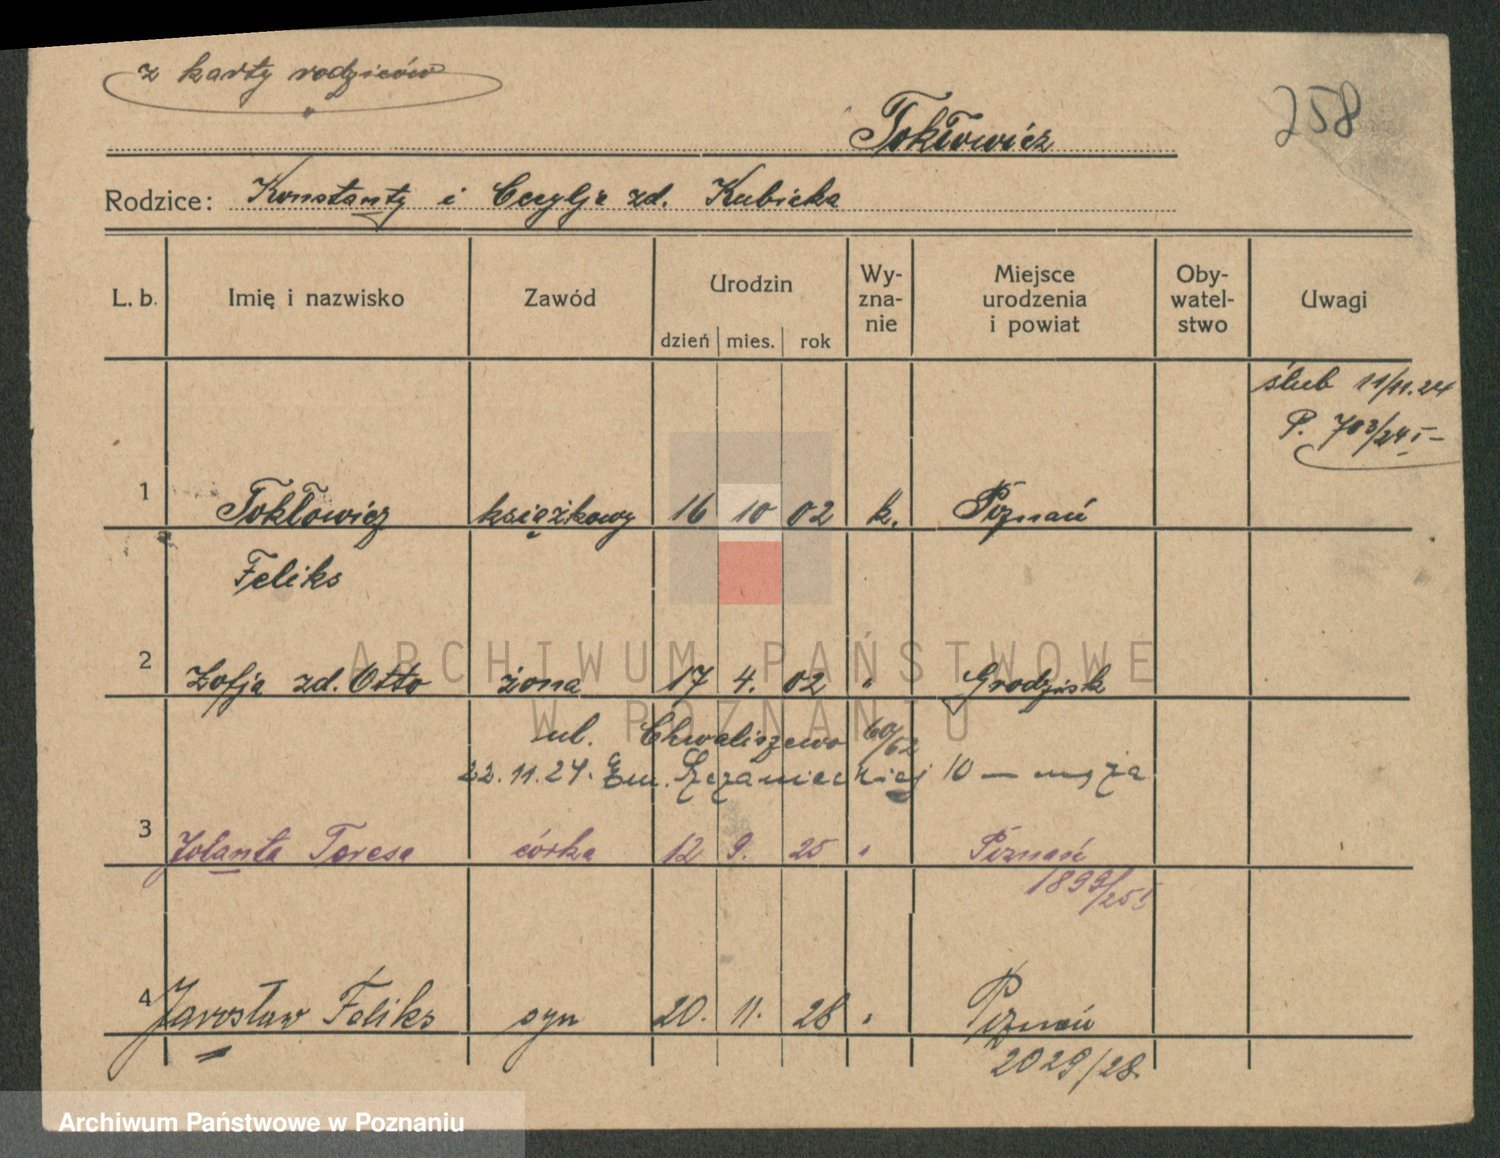 z karty rodziców
258
Tokłowicz
Rodzice: Konstanty i Cecylja zd. Kubicka
L. b. Imię i nazwisko Zawód Urodzin dzień mies. rok Wy-zna-nie Miejsce urodzenia i powiat Oby-watel-stwo Uwagi
ślub 11/11.24
P. 703/24 I
1 Tokłowicz książkowy 16 10 02 k. Poznań
Feliks
2 Zofja zd. Otto żona 17 4. 02 " Grodzisk
ul. Chwaliszewo 60/62
22.11.24. Em. Szczanieckiej 10 — męża
3 Jolanta Teresa córka 12 9. 25 " Poznań
1899/25 I
4 Jarosław Feliks syn 20. 11. 28 " Poznań
2029/28.
ARCHIWUM PAŃSTWOWE
W POZNANIU
Archiwum Państwowe w Poznaniu